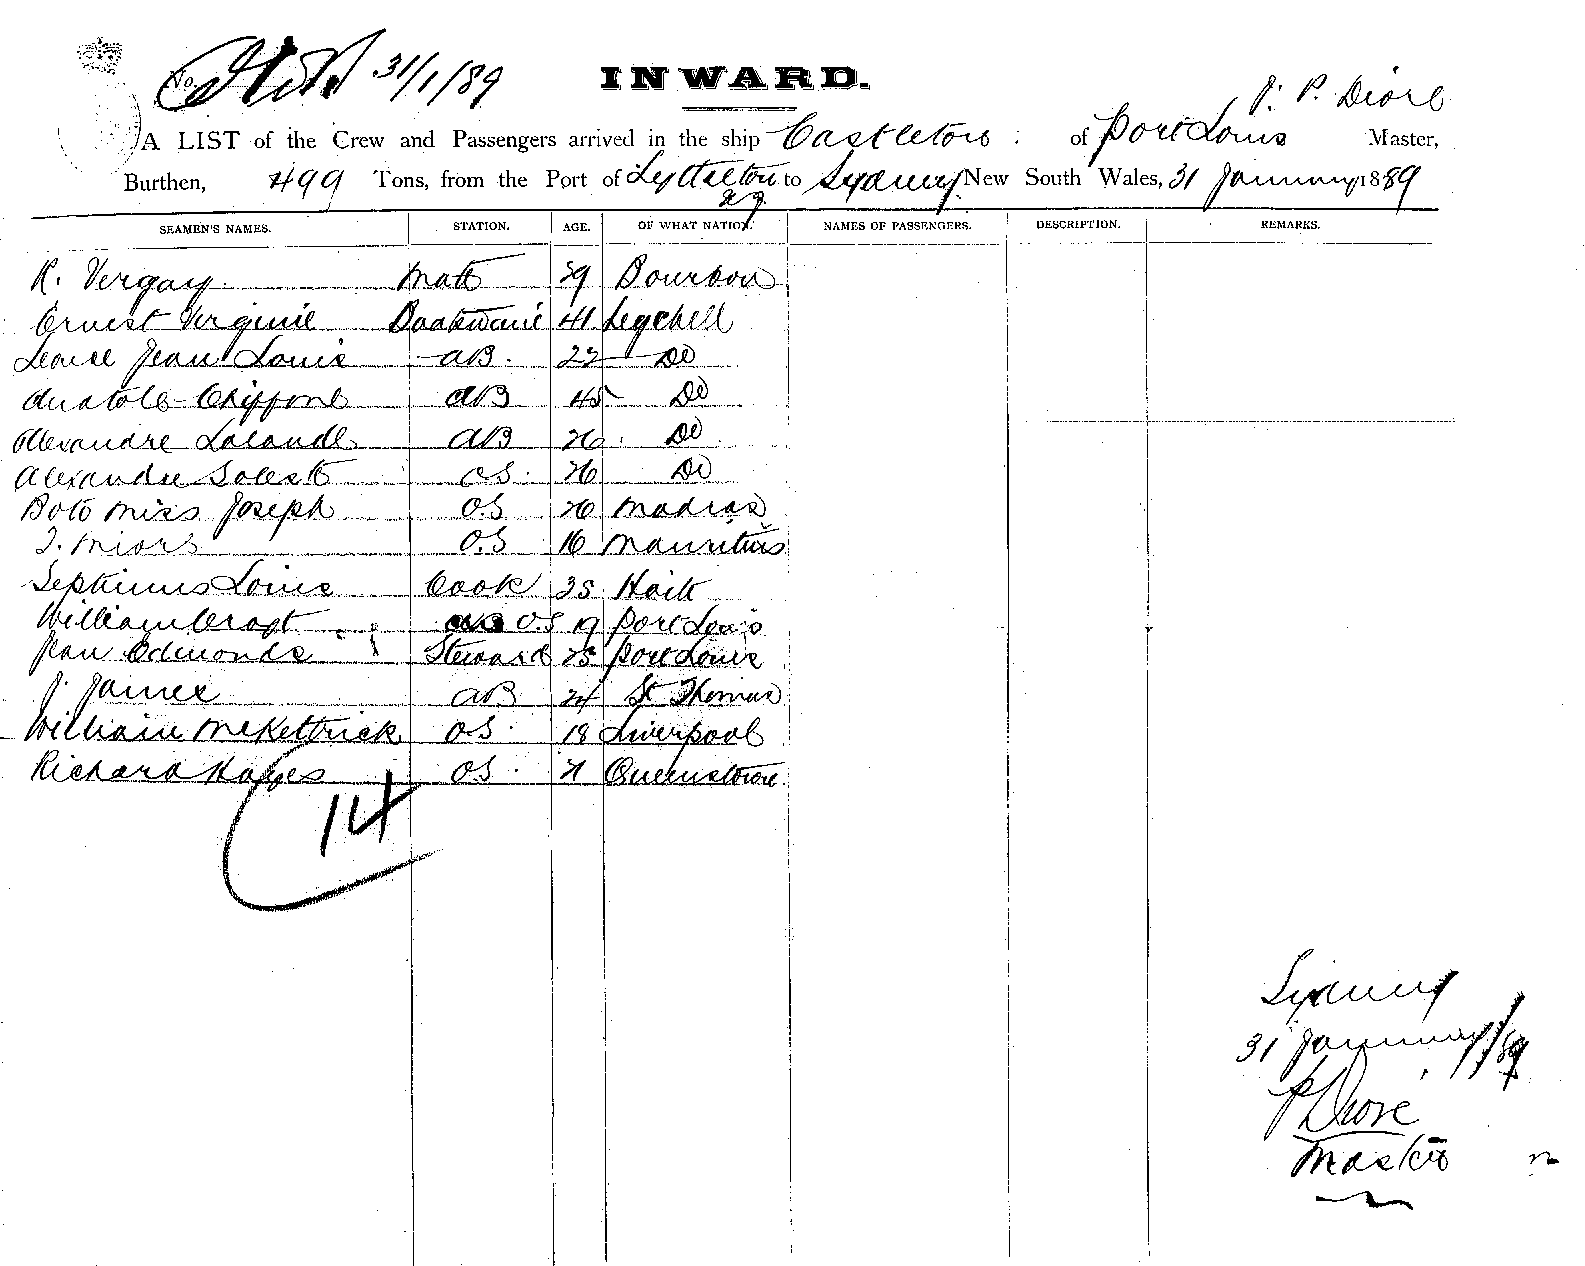 No. 31/1/89
INWARD.
J. P. Diore
A LIST of the Crew and Passengers arrived in the ship Castleton of Port Louis Master,
Burthen, 499 Tons, from the Port of Lyttelton to Sydney New South Wales, 31 January 1889
SEAMEN'S NAMES. STATION. AGE. OF WHAT NATION. NAMES OF PASSENGERS. DESCRIPTION. REMARKS.
R. Vergay Matt 39 Bourbon
Ernest Virginie 41
Jean Louis AB. 22 Do
Anatole Chiffone AB 45 Do
Alexandre Lalande AB 26 Do
Alexandre OS. 26 Do
Miss Joseph O.S 26 Madras
O.S 16 Mauritius
Septimus Louis Cook 35 Haiti
William Croft O.S 19 Port Louis
Jean Edmonds Steward 25 Port Louis
J. James AB 24 St Thomas
William McKettrick OS. 18 Liverpool
Richard Hayes OS. 21 Queenstown
14
Sydney
31 January/89
P Diore
Master